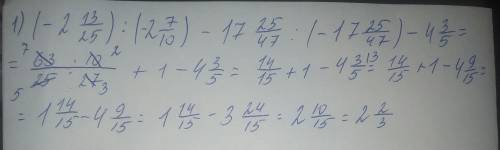 1) (-2 13/25) : (-2 7/10) - 17 25/47 : (-17 25/47) - 4 3/5 =
= 63 7 · 10 2 / 25 5 · 27 3 + 1 - 4 3/5 = 14/15 + 1 - 4 3/5 = 13 14/15 + 1 - 4 9/15 =
= 1 14/15 - 4 9/15 = 1 14/15 - 3 24/15 = 2 10/15 = 2 2/3